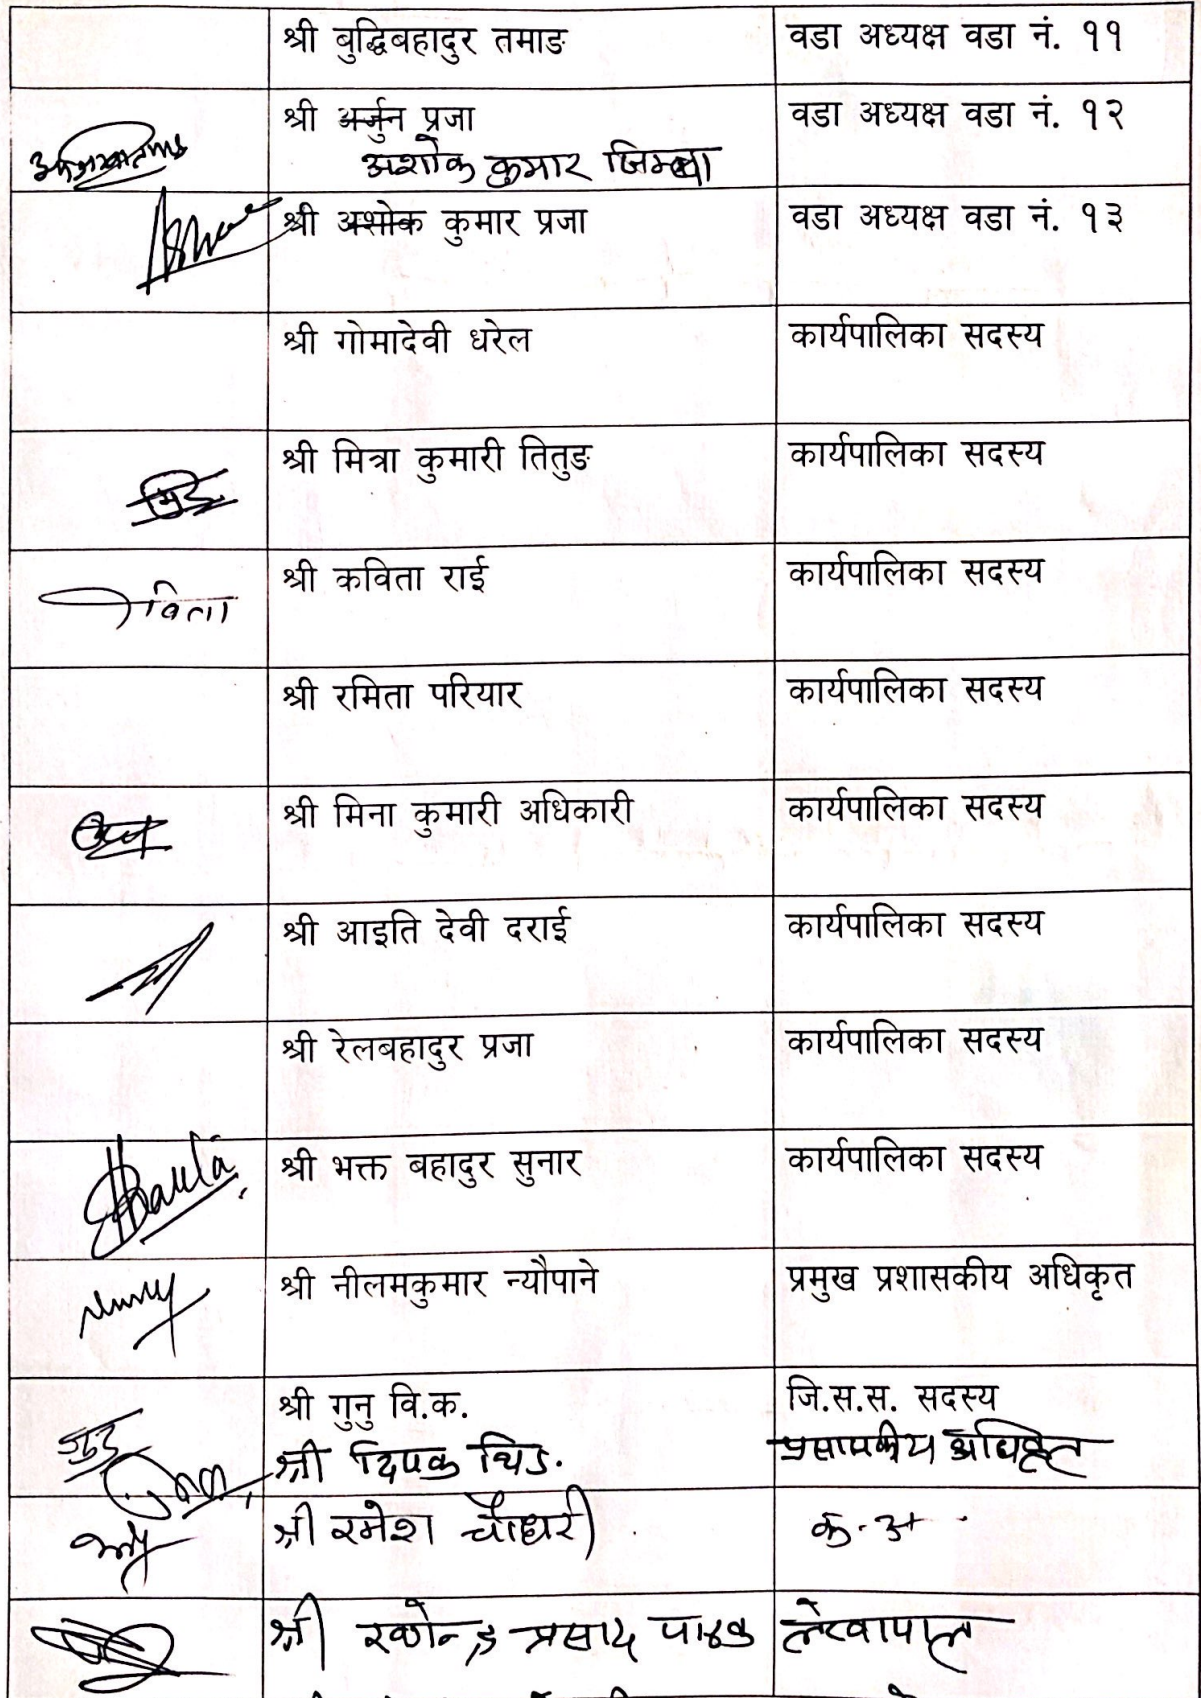 श्री बुद्धिबहादुर तमाङ वडा अध्यक्ष वडा नं. ११
श्री अर्जुन प्रजा वडा अध्यक्ष वडा नं. १२
अशोक कुमार
श्री अशोक कुमार प्रजा वडा अध्यक्ष वडा नं. १३
श्री गोमादेवी धरेल कार्यपालिका सदस्य
श्री मित्रा कुमारी तितुङ कार्यपालिका सदस्य
श्री कविता राई कार्यपालिका सदस्य
श्री रमिता परियार कार्यपालिका सदस्य
श्री मिना कुमारी अधिकारी कार्यपालिका सदस्य
श्री आइति देवी दराई कार्यपालिका सदस्य
श्री रेलबहादुर प्रजा कार्यपालिका सदस्य
श्री भक्त बहादुर सुनार कार्यपालिका सदस्य
श्री नीलमकुमार न्यौपाने प्रमुख प्रशासकीय अधिकृत
श्री गुनु वि.क. जि.स.स. सदस्य
श्री दिपक
श्री रमेश चौधरी क.अ
श्री प्रसाद लेखापाल